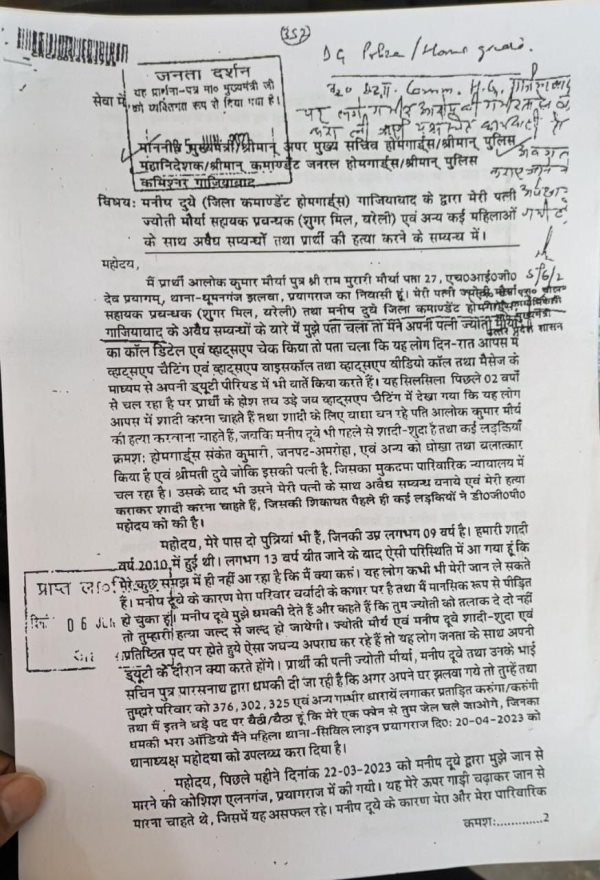 (352)
DG Police/Home guard.
जनता दर्शन
यह प्रार्थना-पत्र मा० मुख्यमंत्री जी
को व्यक्तिगत रूप से दिया गया है।
सेवा में
माननीय मुख्यमंत्री/श्रीमान् अपर मुख्य सचिव होमगार्ड्स/श्रीमान् पुलिस
महानिदेशक/श्रीमान् कमाण्डेंट जनरल होमगार्ड्स/श्रीमान् पुलिस
कमिश्नर गाजियाबाद
विषयः मनीष दुबे (जिला कमाण्डेंट होमगार्ड्स) गाजियाबाद के द्वारा मेरी पत्नी
ज्योती मौर्या सहायक प्रबन्धक (शुगर मिल, बरेली) एवं अन्य कई महिलाओं
के साथ अवैध सम्बन्धों तथा प्रार्थी की हत्या करने के सम्बन्ध में।
महोदय,
मैं प्रार्थी आलोक कुमार मौर्या पुत्र श्री राम मुरारी मौर्या पता 27, एच०आई०जी०
देव प्रयागम्, थाना-धूमनगंज झलवा, प्रयागराज का निवासी हूं। मेरी पत्नी ज्योती मौर्या
सहायक प्रबन्धक (शुगर मिल, बरेली) तथा मनीष दुबे जिला कमाण्डेंट होमगार्ड्स
गाजियाबाद के अवैध सम्बन्धों के बारे में मुझे पता चला तो मैंने अपनी पत्नी ज्योती मौर्या
का कॉल डिटेल एवं व्हाट्सएप चेक किया तो पता चला कि यह लोग दिन-रात आपस में
व्हाट्सएप चैटिंग एवं व्हाट्सएप वाइसकॉल तथा व्हाट्सएप वीडियो कॉल तथा मैसेज के
माध्यम से अपनी ड्यूटी पीरियड में भी बातें किया करते हैं। यह सिलसिला पिछले 02 वर्षों
से चल रहा है पर प्रार्थी के होश तब उड़े जब व्हाट्सएप चैटिंग में देखा गया कि यह लोग
आपस में शादी करना चाहते हैं तथा शादी के लिए बाधा बन रहे पति आलोक कुमार मौर्य
की हत्या करवाना चाहते हैं, जबकि मनीष दूबे भी पहले से शादी-शुदा है तथा कई लड़कियाँ
क्रमशः होमगार्ड्स संकेत कुमारी, जनपद-अमरोहा, एवं अन्य को धोखा तथा बलात्कार
किया है एवं श्रीमती दुबे जोकि इसकी पत्नी है, जिसका मुकदमा पारिवारिक न्यायालय में
चल रहा है। उसके बाद भी उसने मेरी पत्नी के साथ अवैध सम्बन्ध बनाये एवं मेरी हत्या
कराकर शादी करना चाहते हैं, जिसकी शिकायत पहले ही कई लड़कियों ने डी०जी०पी०
महोदय को की है।
महोदय, मेरे पास दो पुत्रियां भी हैं, जिनकी उम्र लगभग 09 वर्ष है। हमारी शादी
वर्ष 2010 में हुई थी। लगभग 13 वर्ष बीत जाने के बाद ऐसी परिस्थिति में आ गया हूं कि
मेरे कुछ समझ में ही नहीं आ रहा है कि मैं क्या करूं। यह लोग कभी भी मेरी जान ले सकते
हैं। मनीष दूबे के कारण मेरा परिवार बर्बादी के कगार पर है तथा मैं मानसिक रूप से पीड़ित
हो चुका हूं। मनीष दूबे मुझे धमकी देते हैं और कहते हैं कि तुम ज्योती को तलाक दे दो नहीं
तो तुम्हारी हत्या जल्द से जल्द हो जायेगी। ज्योती मौर्य एवं मनीष दूबे शादी-शुदा एवं
प्रतिष्ठित पद पर होते हुये ऐसा जघन्य अपराध कर रहे हैं तो यह लोग जनता के साथ अपनी
ड्यूटी के दौरान क्या करते होंगे। प्रार्थी की पत्नी ज्योती मौर्या, मनीष दूबे तथा उनके भाई
सचिन पुत्र पारसनाथ द्वारा धमकी दी जा रही है कि अगर अपने घर झलवा गये तो तुम्हें तथा
तुम्हारे परिवार को 376, 302, 325 एवं अन्य गम्भीर धारायें लगाकर प्रताड़ित करुंगा/करुंगी
तथा मैं इतने बड़े पद पर बैठी/बैठा हूं कि मेरे एक फोन से तुम जेल चले जाओगे, जिनका
धमकी भरा ऑडियो मैंने महिला थाना-सिविल लाइन प्रयागराज दि०: 20-04-2023 को
थानाध्यक्ष महोदया को उपलब्ध करा दिया है।
महोदय, पिछले महीने दिनांक 22-03-2023 को मनीष दूबे द्वारा मुझे जान से
मारने की कोशिश एलनगंज, प्रयागराज में की गयी। यह मेरे ऊपर गाड़ी चढ़ाकर जान से
मारना चाहते थे, जिसमें यह असफल रहे। मनीष दूबे के कारण मेरा और मेरा पारिवारिक
क्रमशः.............2
प्राप्त
06